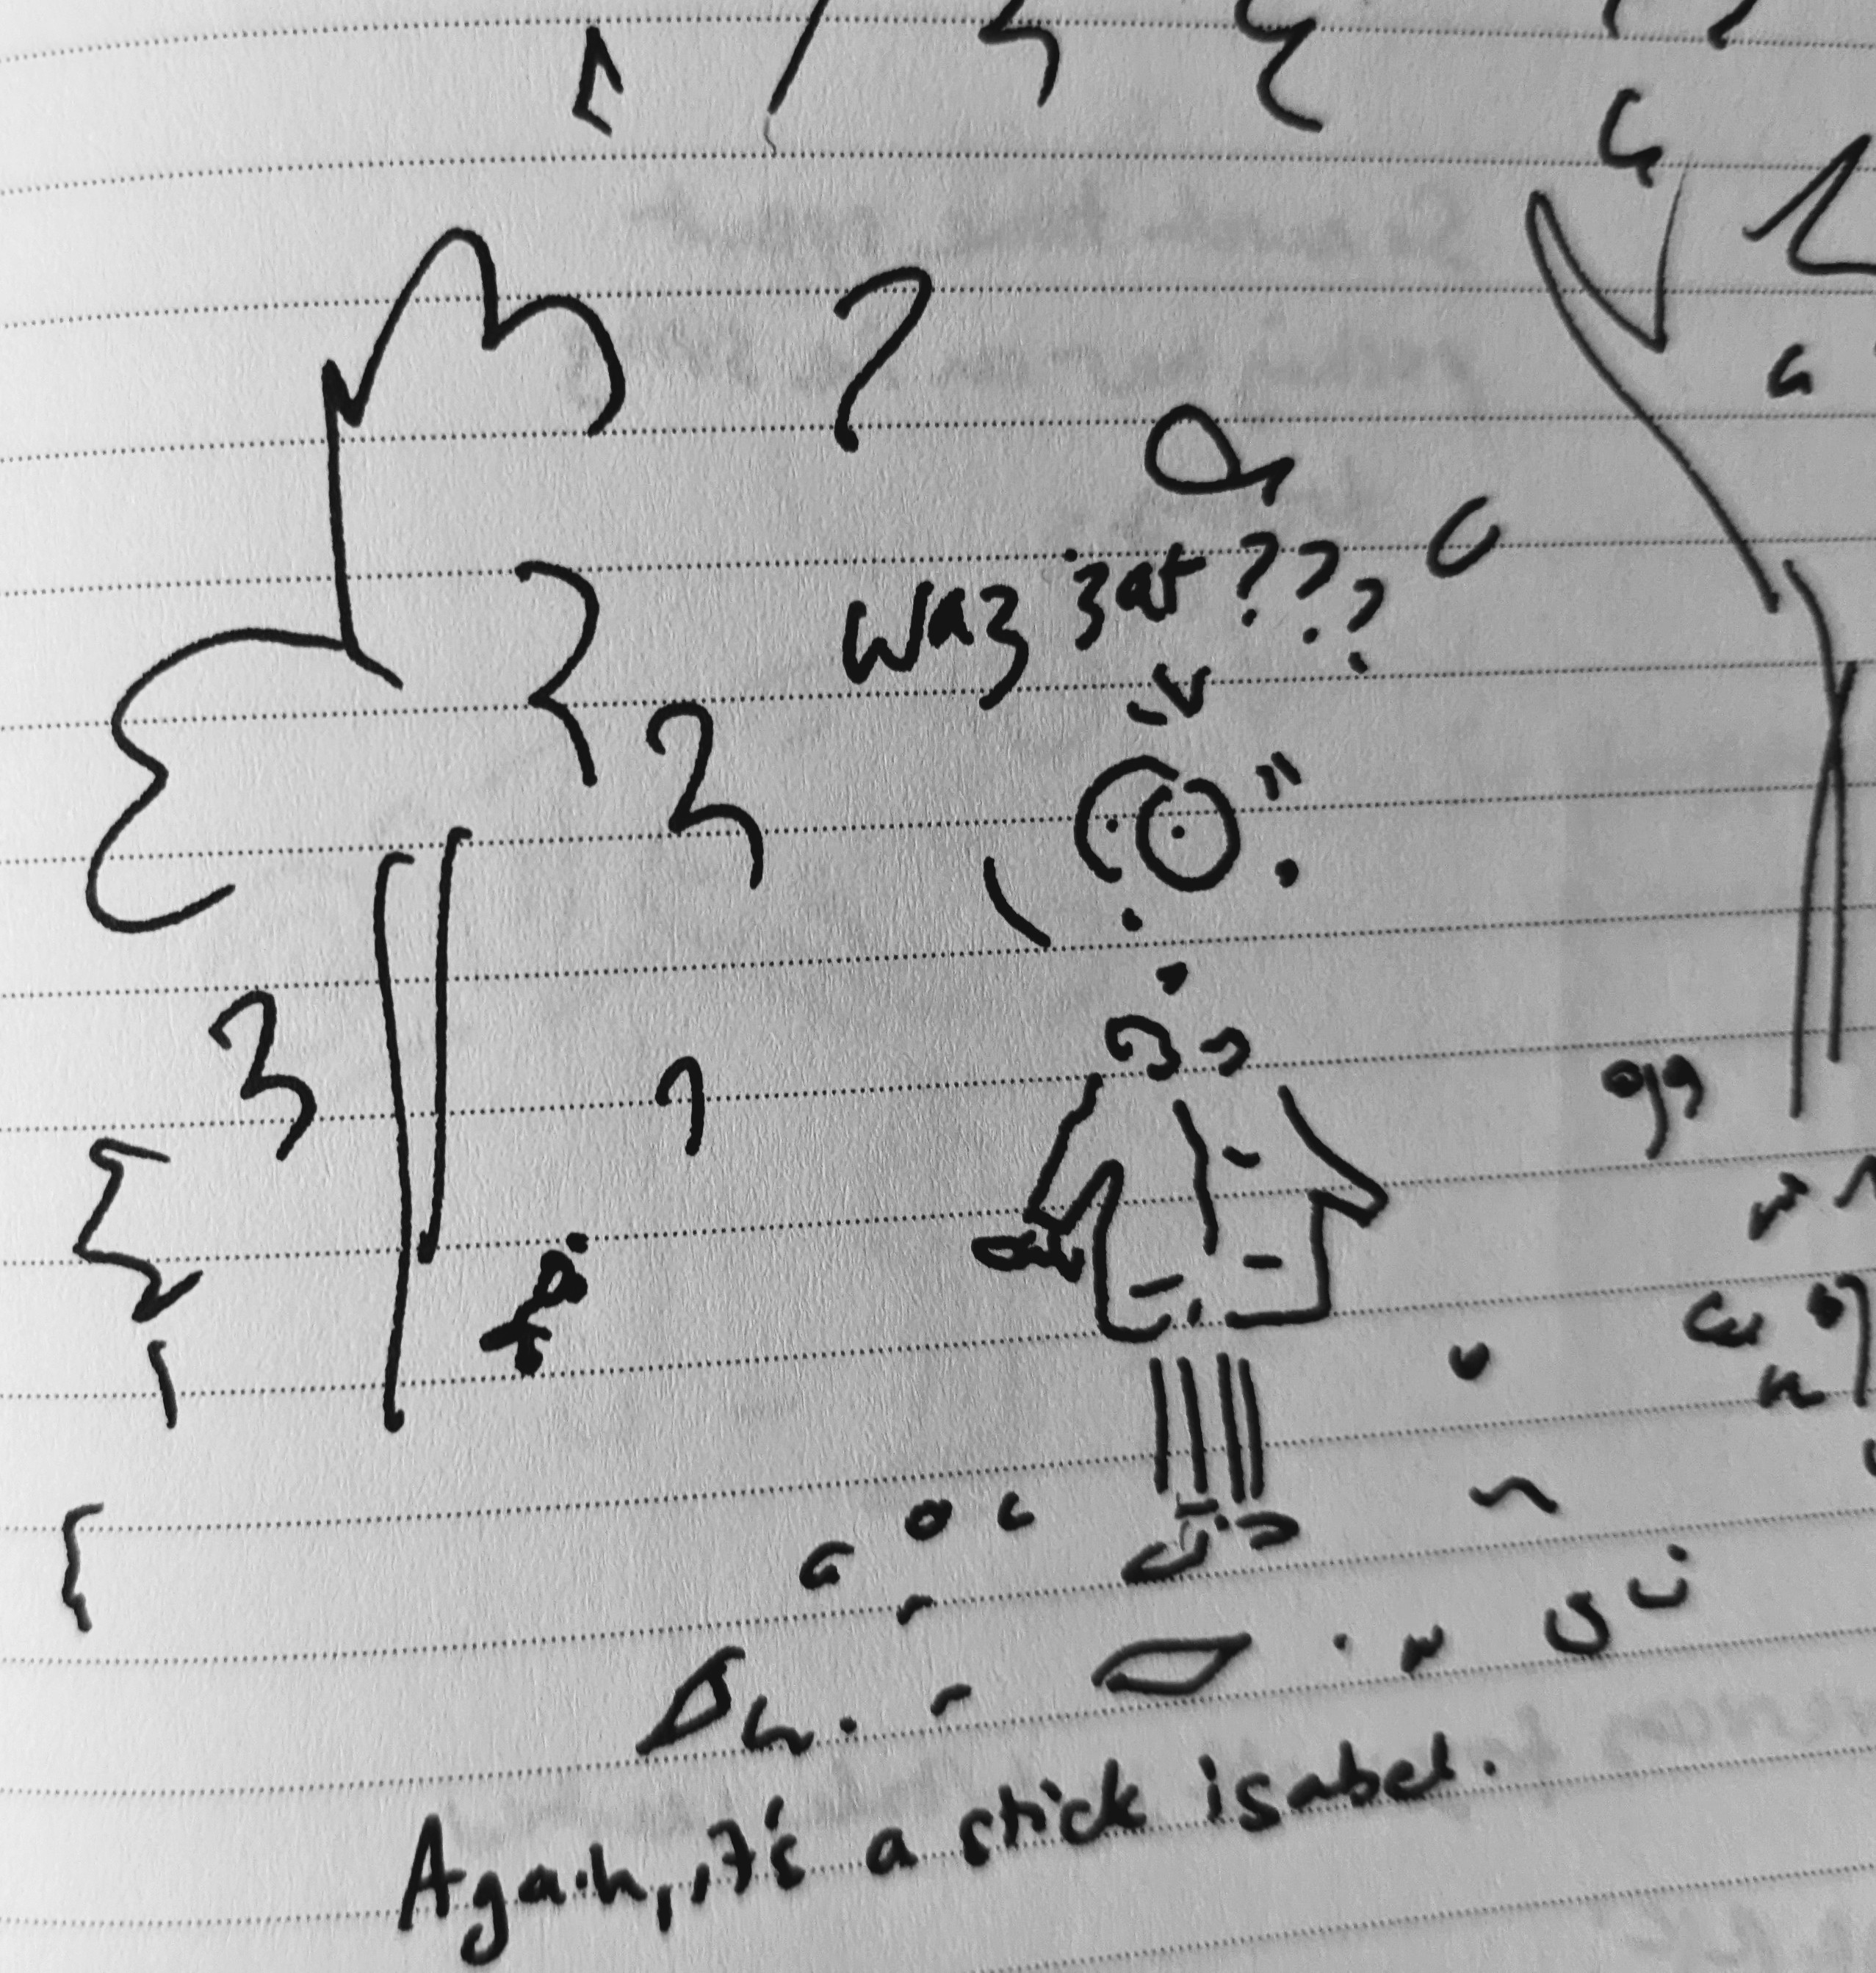 waz zat???
Again, it's a stick isabel.